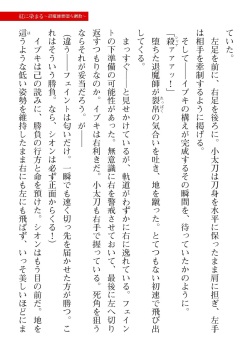 紅に染まる
ていた。
　左足を前に、右足を後ろに。小太刀は刀身を水平に保ったまま肩に担ぎ、左手
は相手を牽制するように掲げる。
　そして――イブキの構えが完成するその瞬間を、待っていたかのように。
「殺ァァァッ！」
　堕ちた退魔師が裂帛の気合いを吐き、地を蹴った。とてつもない初速で飛び出
してくる。
　まっすぐ――と見せかけているが、軌道がわずかに右に逸れている。フェイン
トの下準備の可能性があった。無意識に右を警戒させておいて、最後に左へ切り
返すつもりなのか。イブキは右利きだ。小太刀も右手で握っている。死角を狙う
ならそれが妥当だろう。が――
（違う――フェイントは匂いだけ。一瞬でも速く切っ先を届かせた方が勝つ。こ
れはそういう勝負。なら、シオンは必ず正面からくる！）
　イブキは己の読みに、勝負の行方と命を預けた。シオンはもう目の前だ。地を
這うような低い姿勢を維持したまま右にも左にも飛ばず、いっそ美しいほどにま